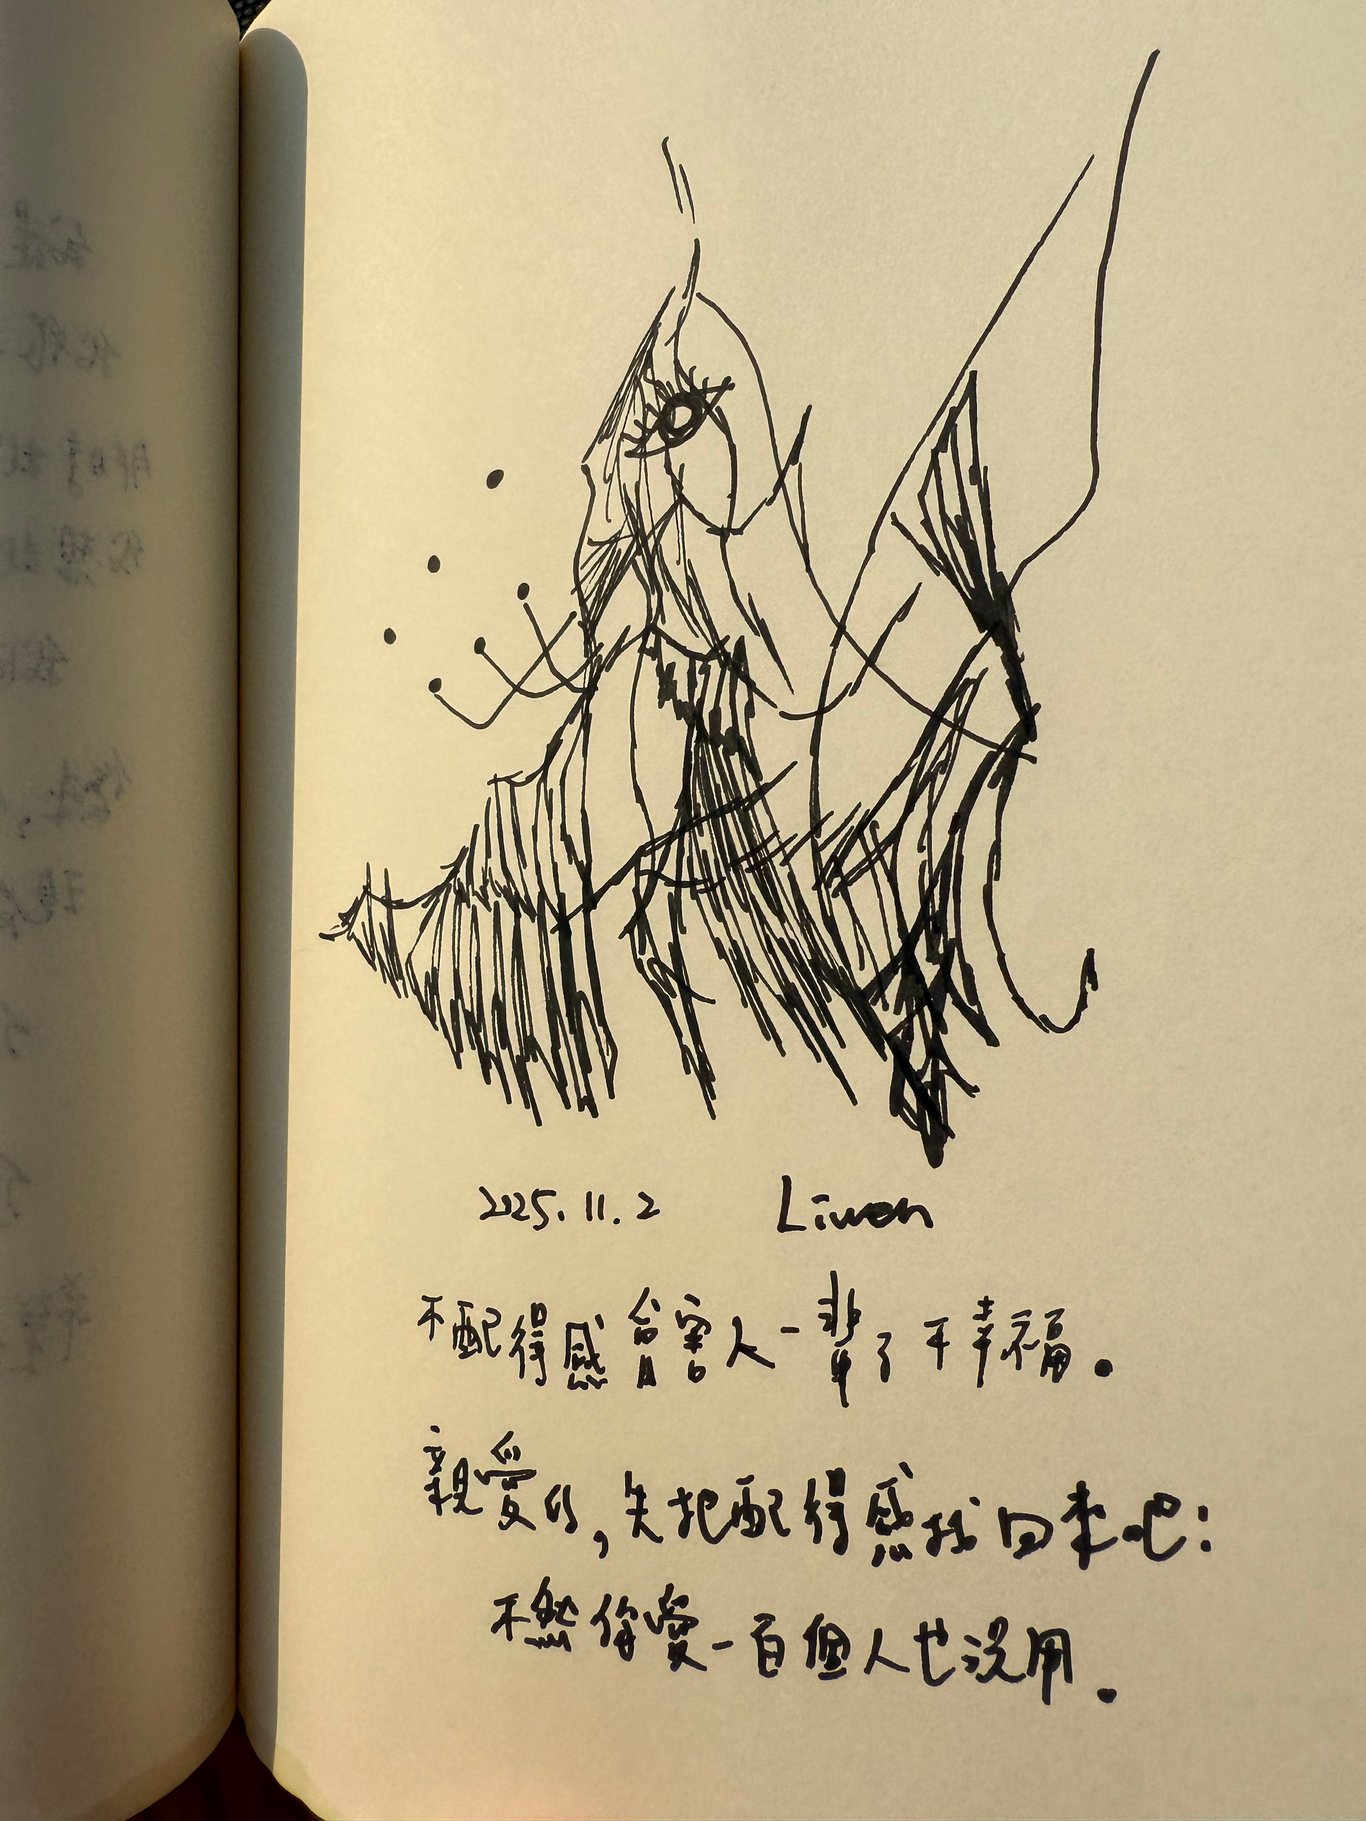 2025.11.2 Liwen
不配得感會害人一輩子不幸福。
親愛的,先把配得感找回來吧:
不然你愛一百個人也沒用.